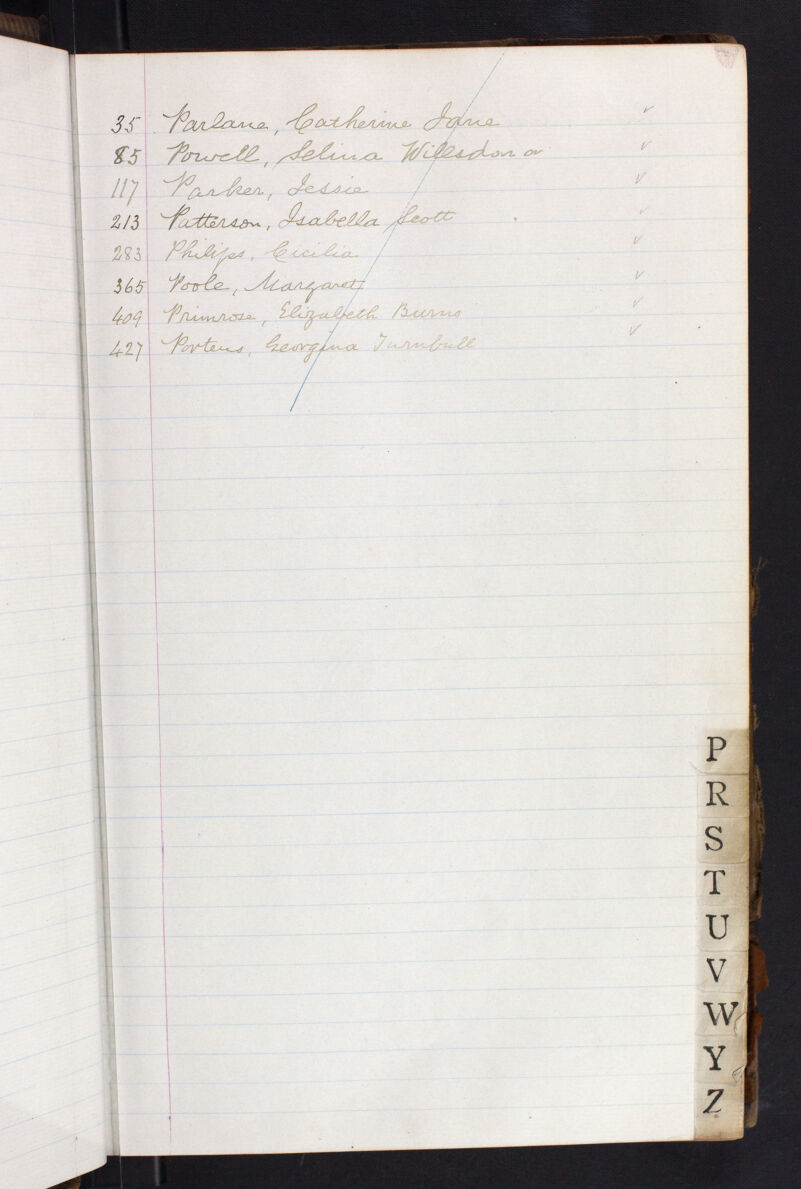 35 Parlane, Catherine Jane ✓
85 Powell, Selina Willsdon or ✓
117 Parker, Jessie ✓
213 Patterson, Isabella Scott ✓
283 Philips, Cicilia ✓
365 Poole, Margaret ✓
409 Primrose, Elizabeth Burns ✓
427 Porteus, Georgina Turnbull ✓
P
R
S
T
U
V
W
Y
Z